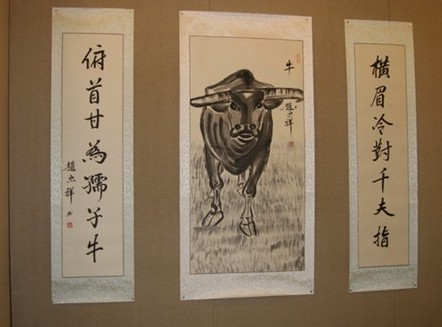 橫眉冷對千夫指
牛
趙忠祥
俯首甘為孺子牛
趙忠祥